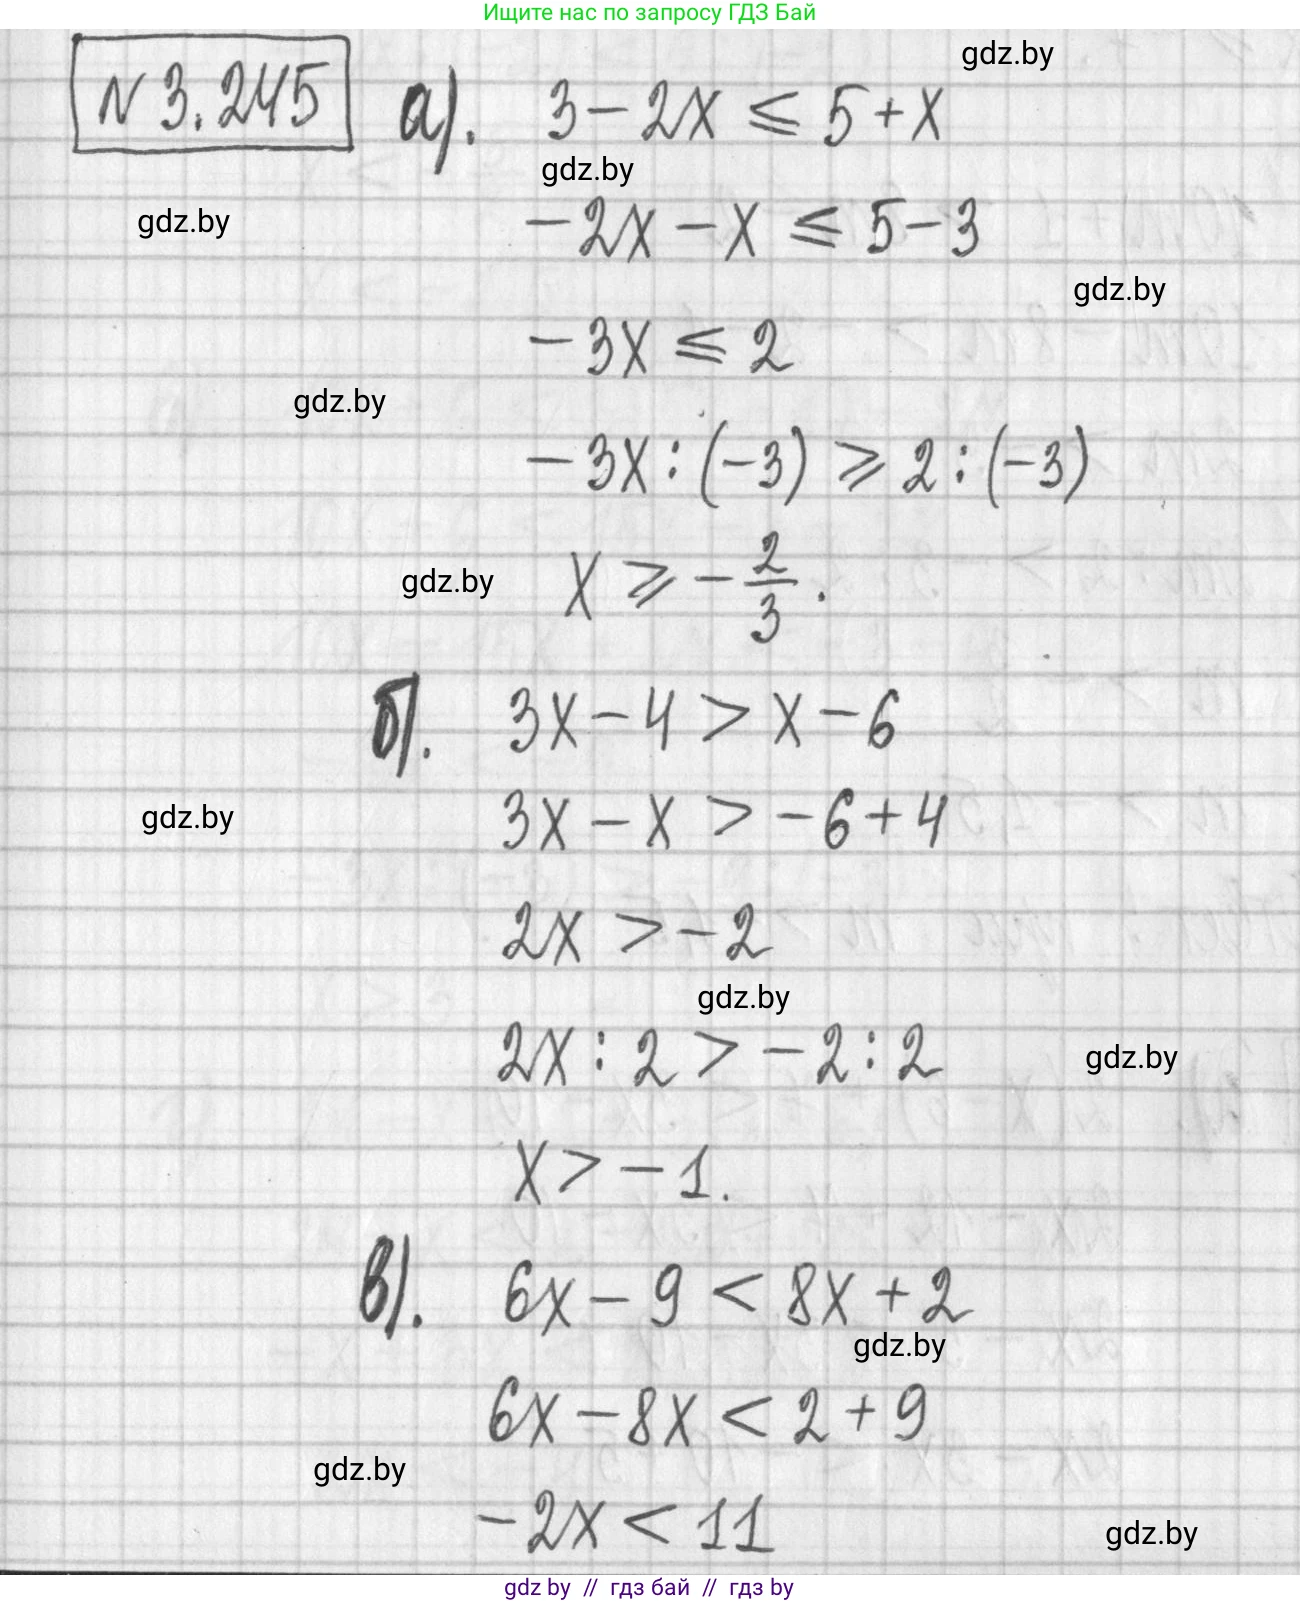 Ищите нас по запросу ГДЗ Бай
gdz.by
№ 3.245 а). 3 - 2x ⩽ 5 + x
gdz.by
gdz.by
-2x - x ⩽ 5 - 3
gdz.by
-3x ⩽ 2
gdz.by
-3x : (-3) ⩾ 2 : (-3)
gdz.by
x ⩾ -2/3.
б). 3x - 4 > x - 6
gdz.by
3x - x > -6 + 4
2x > -2
gdz.by
2x : 2 > -2 : 2
gdz.by
x > -1.
в). 6x - 9 < 8x + 2
gdz.by
6x - 8x < 2 + 9
gdz.by
-2x < 11
gdz.by
gdz by // гдз бай // гдз by